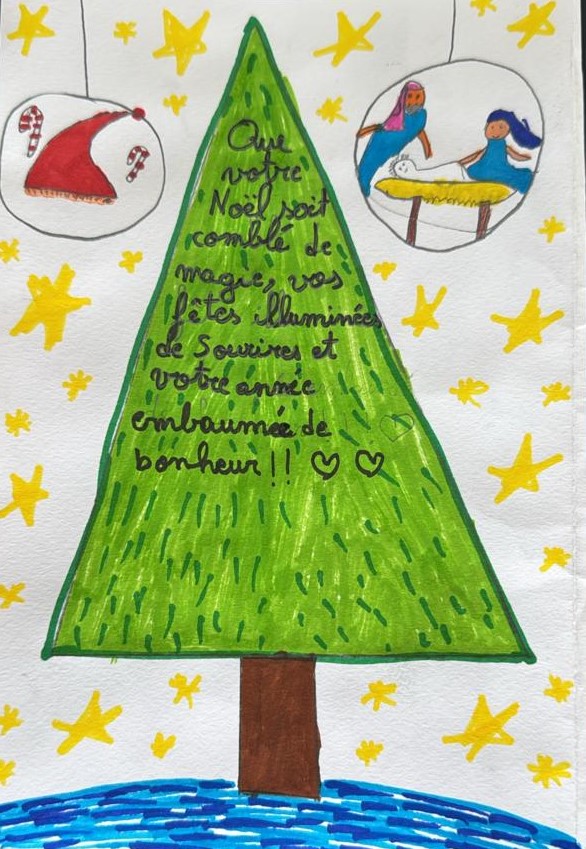 Que
votre
Noël soit
comblé de
magie, vos
fêtes illuminées
de Sourires et
votre année
embaumée de
bonheur !! ♡ ♡